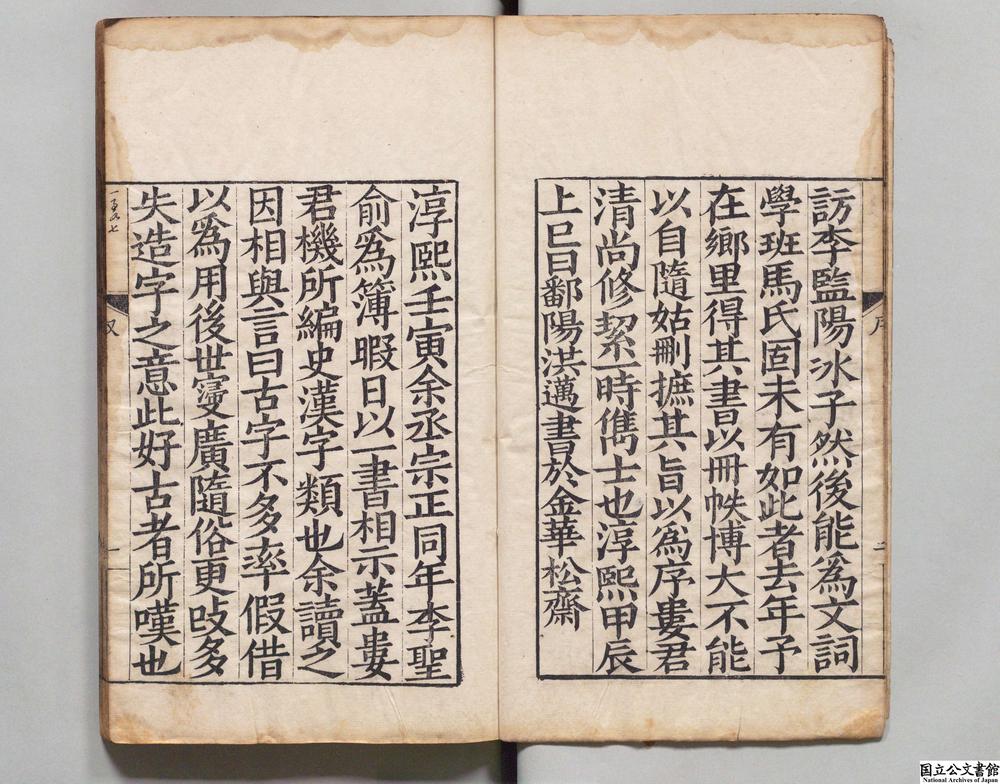 訪李監陽冰子然後能爲文詞
學班馬氏固未有如此者去年予
在鄉里得其書以冊帙博大不能
以自隨姑刪摭其旨以爲序婁君
清尚修絜一時儁士也淳熙甲辰
上巳日鄱陽洪邁書於金華松齋
淳熙壬寅余丞宗正同年李聖
俞爲簿暇日以一書相示蓋婁
君機所編史漢字類也余讀之
因相與言曰古字不多率假借
以爲用後世寖廣隨俗更改多
失造字之意此好古者所嘆也
国立公文書館
National Archives of Japan